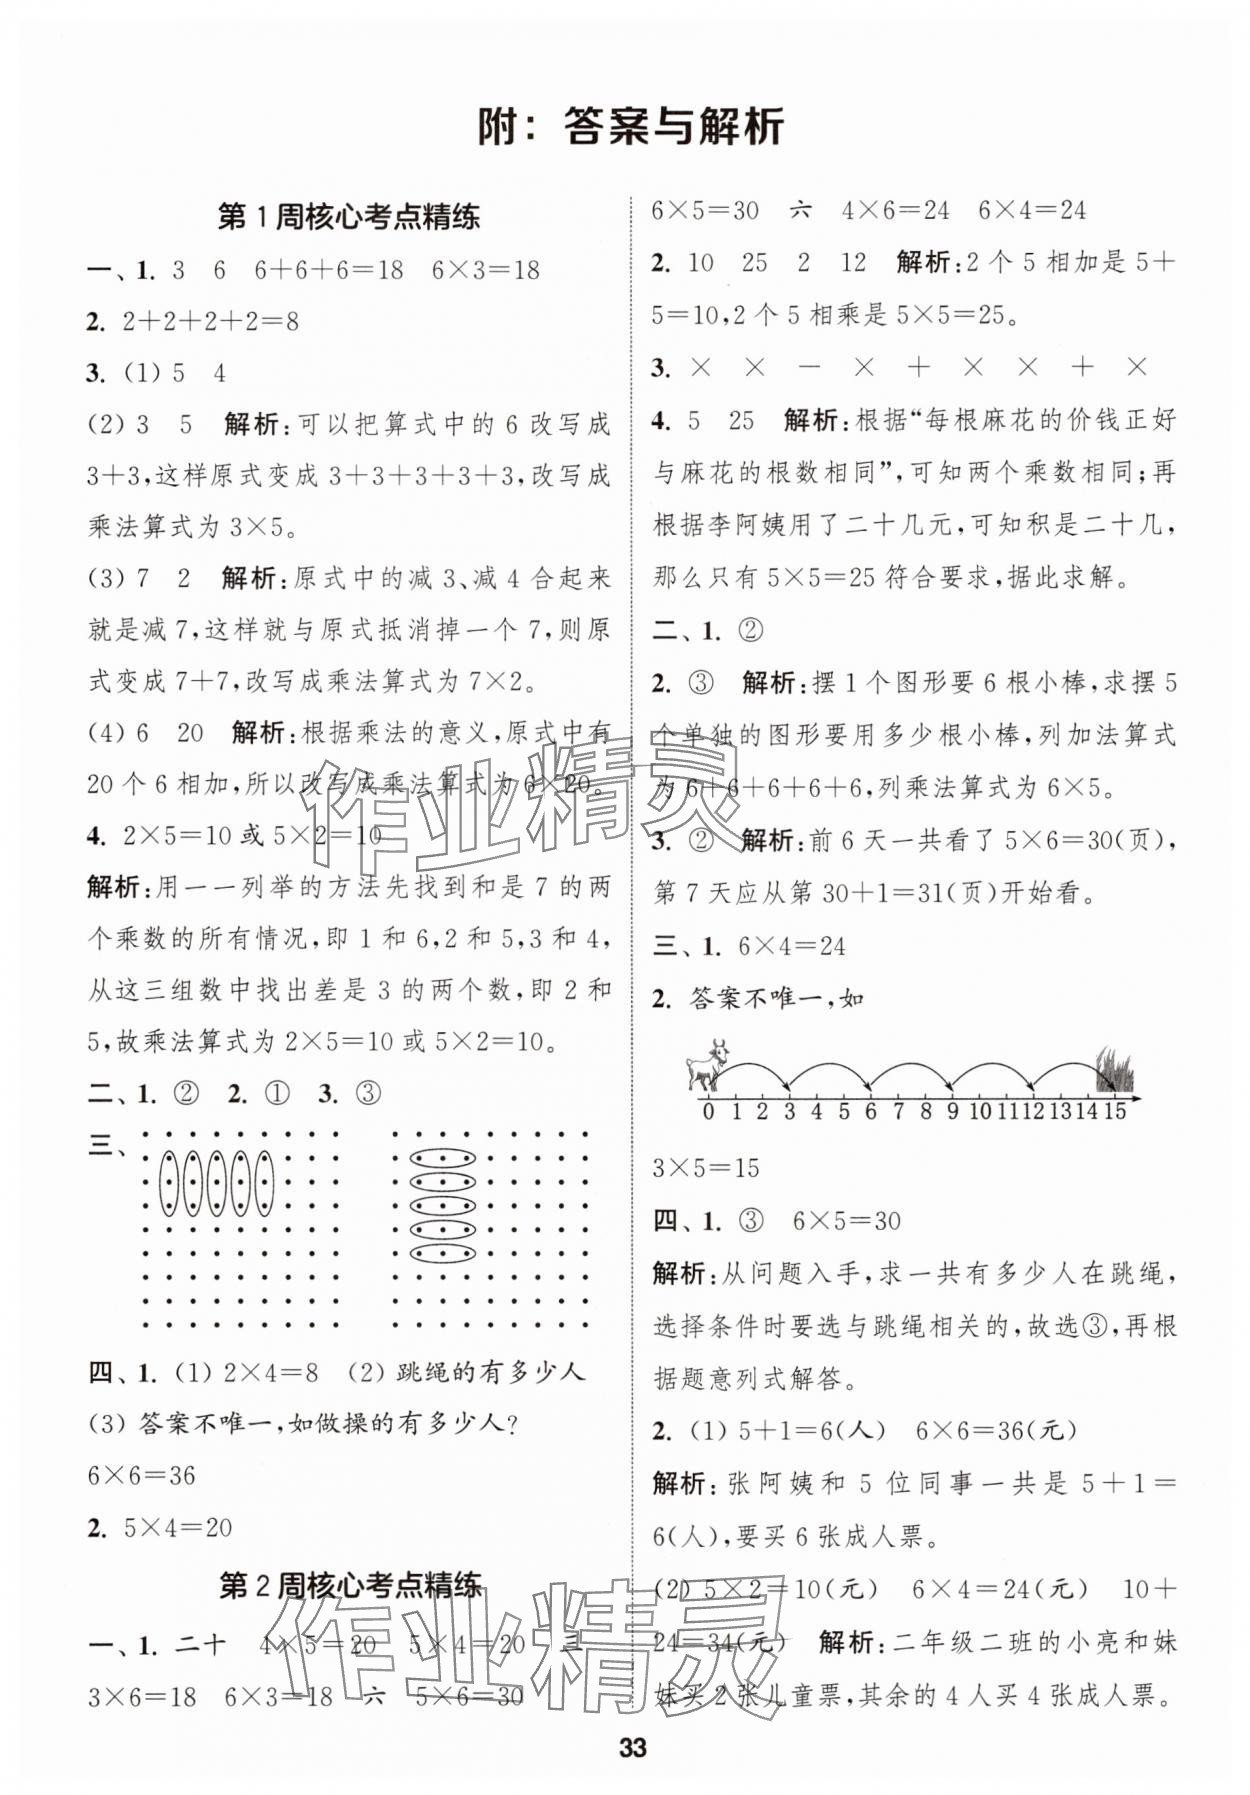 附：答案与解析
第1周核心考点精练
一、1. 3 6 6+6+6=18 6×3=18
2. 2+2+2+2=8
3. (1) 5 4
(2) 3 5 解析:可以把算式中的6改写成
3+3,这样原式变成3+3+3+3+3,改写成
乘法算式为3×5。
(3) 7 2 解析:原式中的减3、减4合起来
就是减7,这样就与原式抵消掉一个7,则原
式变成7+7,改写成乘法算式为7×2。
(4) 6 20 解析:根据乘法的意义,原式中有
20个6相加,所以改写成乘法算式为6×20。
4. 2×5=10或5×2=10
解析:用一一列举的方法先找到和是7的两
个乘数的所有情况,即1和6,2和5,3和4,
从这三组数中找出差是3的两个数,即2和
5,故乘法算式为2×5=10或5×2=10。
二、1. ② 2. ① 3. ③
三、
四、1. (1) 2×4=8 (2) 跳绳的有多少人
(3) 答案不唯一,如做操的有多少人?
6×6=36
2. 5×4=20
第2周核心考点精练
一、1. 二十 4×5=20 5×4=20 三
3×6=18 6×3=18 六 5×6=30
6×5=30 六 4×6=24 6×4=24
2. 10 25 2 12 解析:2个5相加是5+
5=10,2个5相乘是5×5=25。
3. × × − × + × × + ×
4. 5 25 解析:根据“每根麻花的价钱正好
与麻花的根数相同”,可知两个乘数相同;再
根据李阿姨用了二十几元,可知积是二十几,
那么只有5×5=25符合要求,据此求解。
二、1. ②
2. ③ 解析:摆1个图形要6根小棒,求摆5
个单独的图形要用多少根小棒,列加法算式
为6+6+6+6+6,列乘法算式为6×5。
3. ② 解析:前6天一共看了5×6=30(页),
第7天应从第30+1=31(页)开始看。
三、1. 6×4=24
2. 答案不唯一,如
0 1 2 3 4 5 6 7 8 9 10 11 12 13 14 15
3×5=15
四、1. ③ 6×5=30
解析:从问题入手,求一共有多少人在跳绳,
选择条件时要选与跳绳相关的,故选③,再根
据题意列式解答。
2. (1) 5+1=6(人) 6×6=36(元)
解析:张阿姨和5位同事一共是5+1=
6(人),要买6张成人票。
(2) 5×2=10(元) 6×4=24(元) 10+
24=34(元) 解析:二年级二班的小亮和妹
妹买2张儿童票,其余的4人买4张成人票。
作业精灵
作业精灵
33